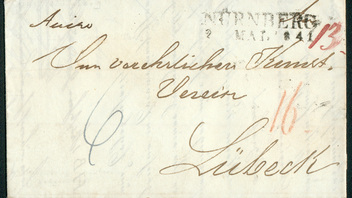 NÜRNBERG
7 MAI 841
13
An verehrlichen Kunst-
Verein
16
Lübeck
6